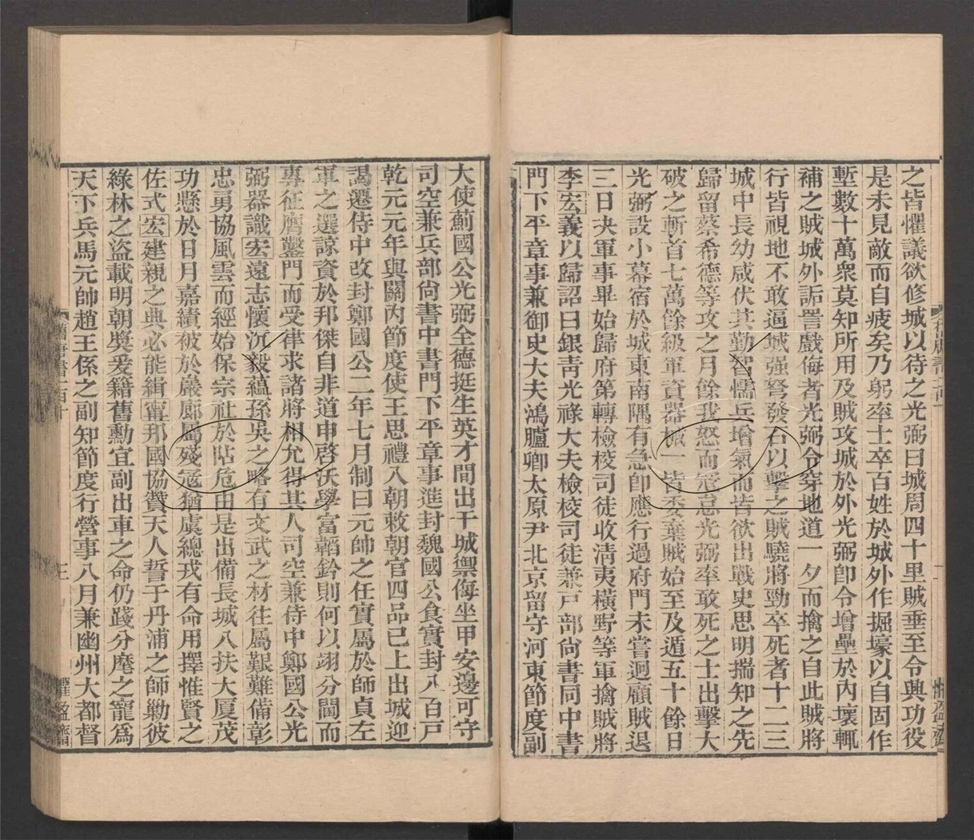 之皆懼議欲修城以待之光弼曰城周四十里賊垂至今興功役
是未見敵而自疲矣乃躬率士卒百姓於城外作掘壕以自固作
塹數十萬衆莫知所用及賊攻城於外光弼卽令增壘於內壞輒
補之賊城外詬詈戲侮者光弼令穿地道一夕而擒之自此賊將
行皆視地不敢逼城强弩發石以擊之賊驍將勁卒死者十二三
城中長幼咸伏其勤智懦兵增氣而皆欲出戰史思明揣知之先
歸留蔡希德等攻之月餘我怒而寇怠光弼率敢死之士出擊大
破之斬首七萬餘級軍資器械一皆委棄賊始至及遁五十餘日
光弼設小幕宿於城東南隅有急卽應行過府門未嘗迴顧賊退
三日決軍事畢始歸府第轉檢校司徒收淸夷橫野等軍擒賊將
李宏義以歸詔曰銀靑光祿大夫檢校司徒兼戸部尚書同中書
門下平章事兼御史大夫鴻臚卿太原尹北京留守河東節度副
大使薊國公光弼全德挺生英才間出干城禦侮坐甲安邊可守
司空兼兵部尚書中書門下平章事進封魏國公食實封八百戸
乾元元年與關內節度使王思禮入朝敕朝官四品已上出城迎
謁遷侍中改封鄭國公二年七月制曰元帥之任實屬於師貞左
軍之選諒資於邦傑自非道申啓沃學富韜鈐則何以翊分閫而
專征膺鑿門而受律求諸將相允得其人司空兼侍中鄭國公光
弼器識宏遠志懷沉毅蘊孫吳之略有文武之材往屬艱難備彰
忠勇協風雲而經始保宗社於阽危由是出備長城入扶大厦茂
功懸於日月嘉績被於巖廊屬殘寇猶虞總戎有命用擇惟賢之
佐式宏建親之典必能緝寧邦國協贊天人誓于丹浦之師勦彼
綠林之盜載明朝奬爰籍舊勳宜副出車之命仍踐分麾之寵爲
天下兵馬元帥趙王係之副知節度行營事八月兼幽州大都督
舊唐書一百十